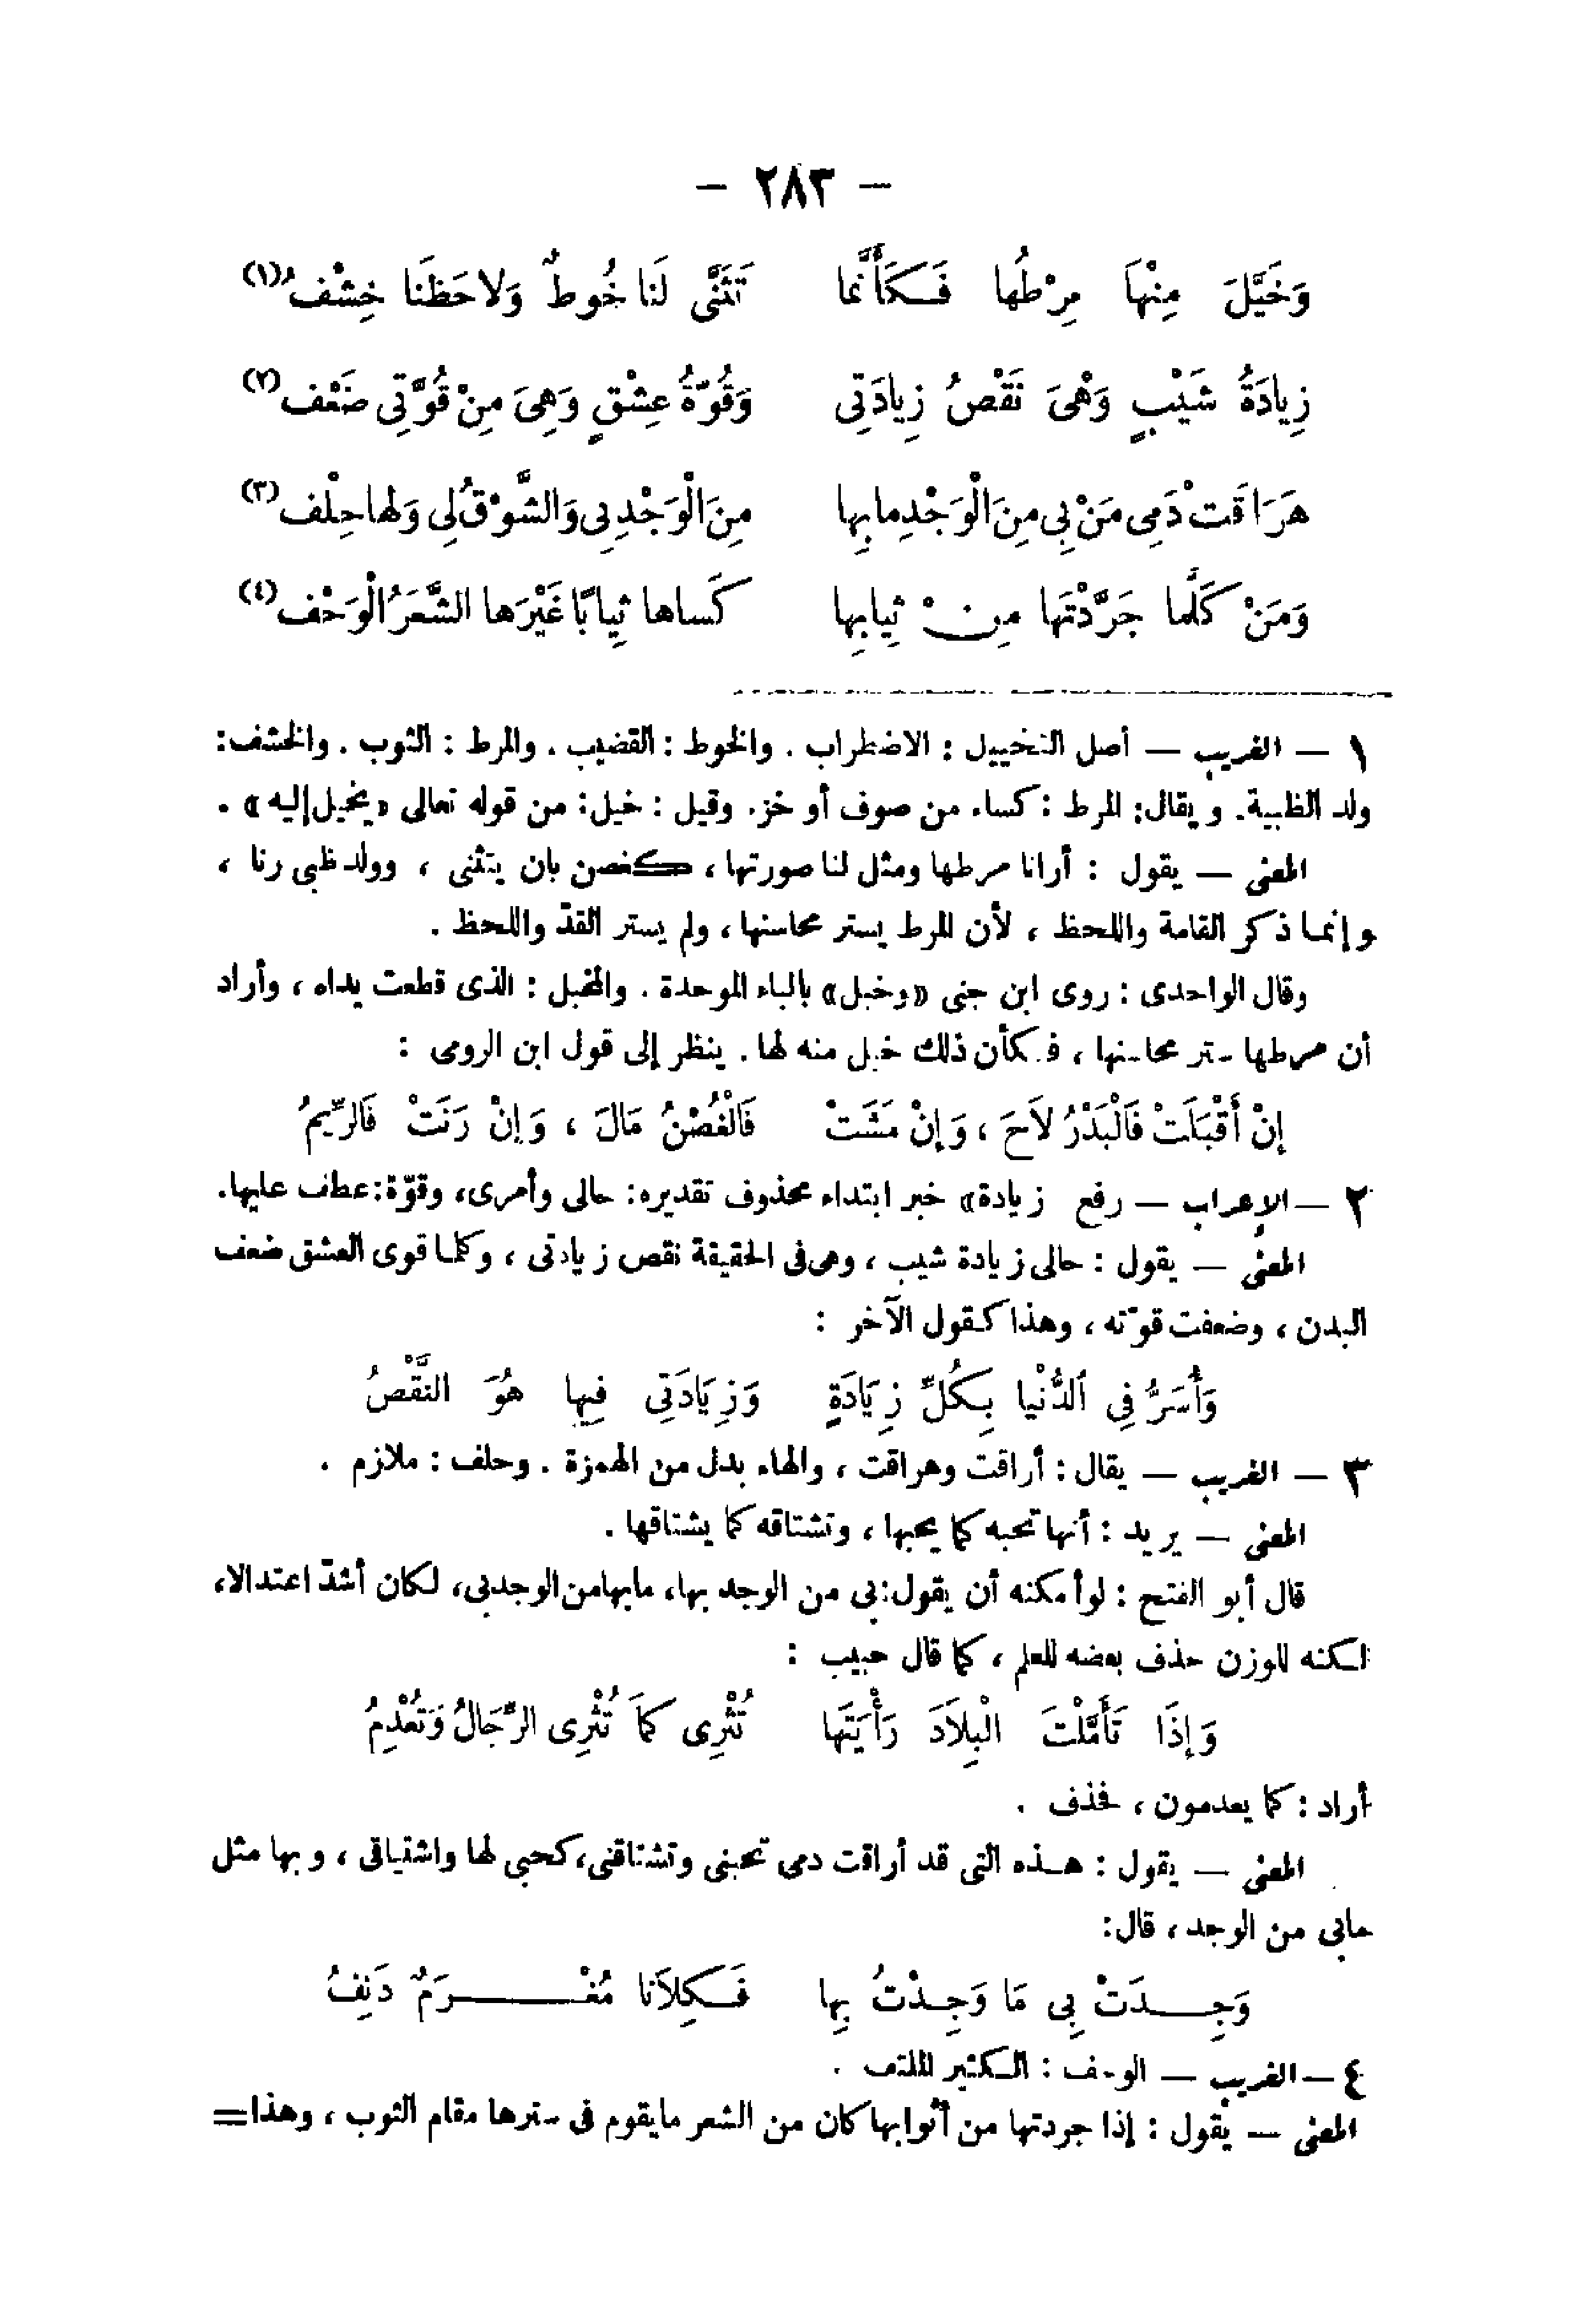 — ٢٨٣ —
وَخَيَّلَ مِنْهاَ مِرْطُها فَكَأَنَّما تَثَنَّى لَنا خُوطٌ وَلاحَظَنا خِشْفُ (١)
زِيادَةُ شَيْبٍ وَهْىَ نَقْصُ زِيادَتِى وَقُوَّةُ عِشْقٍ وَهِىَ مِنْ قُوَّتِى ضَعْف (٢)
هَرَاقَتْ دَمِى مَنْ بِى مِنَ الْوَجْدِ مابِها مِنَ الْوَجْدِ بِى وَالشَّوْقُ لِى وَلها حِلْف (٣)
وَمَنْ كَلَّما جَرَّدْتَها مِنْ ثِيابِها كَساها ثِيابًا غَيْرَها الشَّعَرُ الْوَحْف (٤)
١ — الغريب — أصل التخييل : الاضطراب . والخوط : القضيب . والمرط : الثوب . والخشف :
ولد الظبية. ويقال: المرط : كساء من صوف أو خز. وقيل : خيل: من قوله تعالى «يخيل إليه» .
المعنى — يقول : أرانا مرطها ومثل لنا صورتها ، كغصن بان يتثنى ، وولد ظبى رنا ،
وإنما ذكر القامة واللحظ ، لأن المرط يستر محاسنها ، ولم يستر القدّ واللحظ .
وقال الواحدى : روى ابن جنى «وخبل» بالباء الموحدة . والمخبل : الذى قطعت يداه ، وأراد
أن مرطها ستر محاسنها ، فكأن ذلك خبل منه لها . ينظر إلى قول ابن الرومى :
إِنْ أَقْبَلَتْ فَالْبَدْرُ لاَحَ ، وَإِنْ مَشَتْ فَالْغُصْنُ مَالَ ، وَإِنْ رَنَتْ فَالرِّيمُ
٢ — الإعراب — رفع زيادة» خبر ابتداء محذوف تقديره: حالى وأمرى، وقوّة: عطف عليها.
المعنى — يقول : حالى زيادة شيب ، وهى فى الحقيقة نقص زيادتى ، وكلما قوى العشق ضعف
البدن ، وضعفت قوّته ، وهذا كقول الآخر :
وَأُسَرُّ فِى الدُّنْيا بِكُلِّ زِيَادَةٍ وَزِيَادَتِى فِيها هُوَ النَّقْصُ
٣ — الغريب — يقال : أراقت وهراقت ، والهاء بدل من الهمزة . وحلف : ملازم .
المعنى — يريد : أنها تحبه كما يحبها ، وتشتاقه كما يشتاقها .
قال أبو الفتح : لو أمكنه أن يقول: بى من الوجد بها، مابها من الوجد بى، لكان أشدّ اعتدالا،
لكنه للوزن حذف بعضه للعلم ، كما قال حبيب :
وَإِذَا تَأَمَّلْتَ الْبِلاَدَ رَأَيْتَها تُثْرِى كمَاَ تُثْرِى الرِّجَالُ وَتُعْدِمُ
أراد : كما يعدمون ، فحذف .
المعنى — يقول : هذه التى قد أراقت دمى تحبنى وتشتاقنى، كحبى لها واشتياقى ، وبها مثل
مابى من الوجد ، قال:
وَجِدَتْ بِى مَا وَجِدْتُ بِها فَكِلاَنا مُغْرَمٌ دَنِفُ
٤ — الغريب — الوحف : الكثير الملتف .
المعنى — يقول : إذا جردتها من أثوابها كان من الشعر مايقوم فى سترها مقام الثوب ، وهذا =